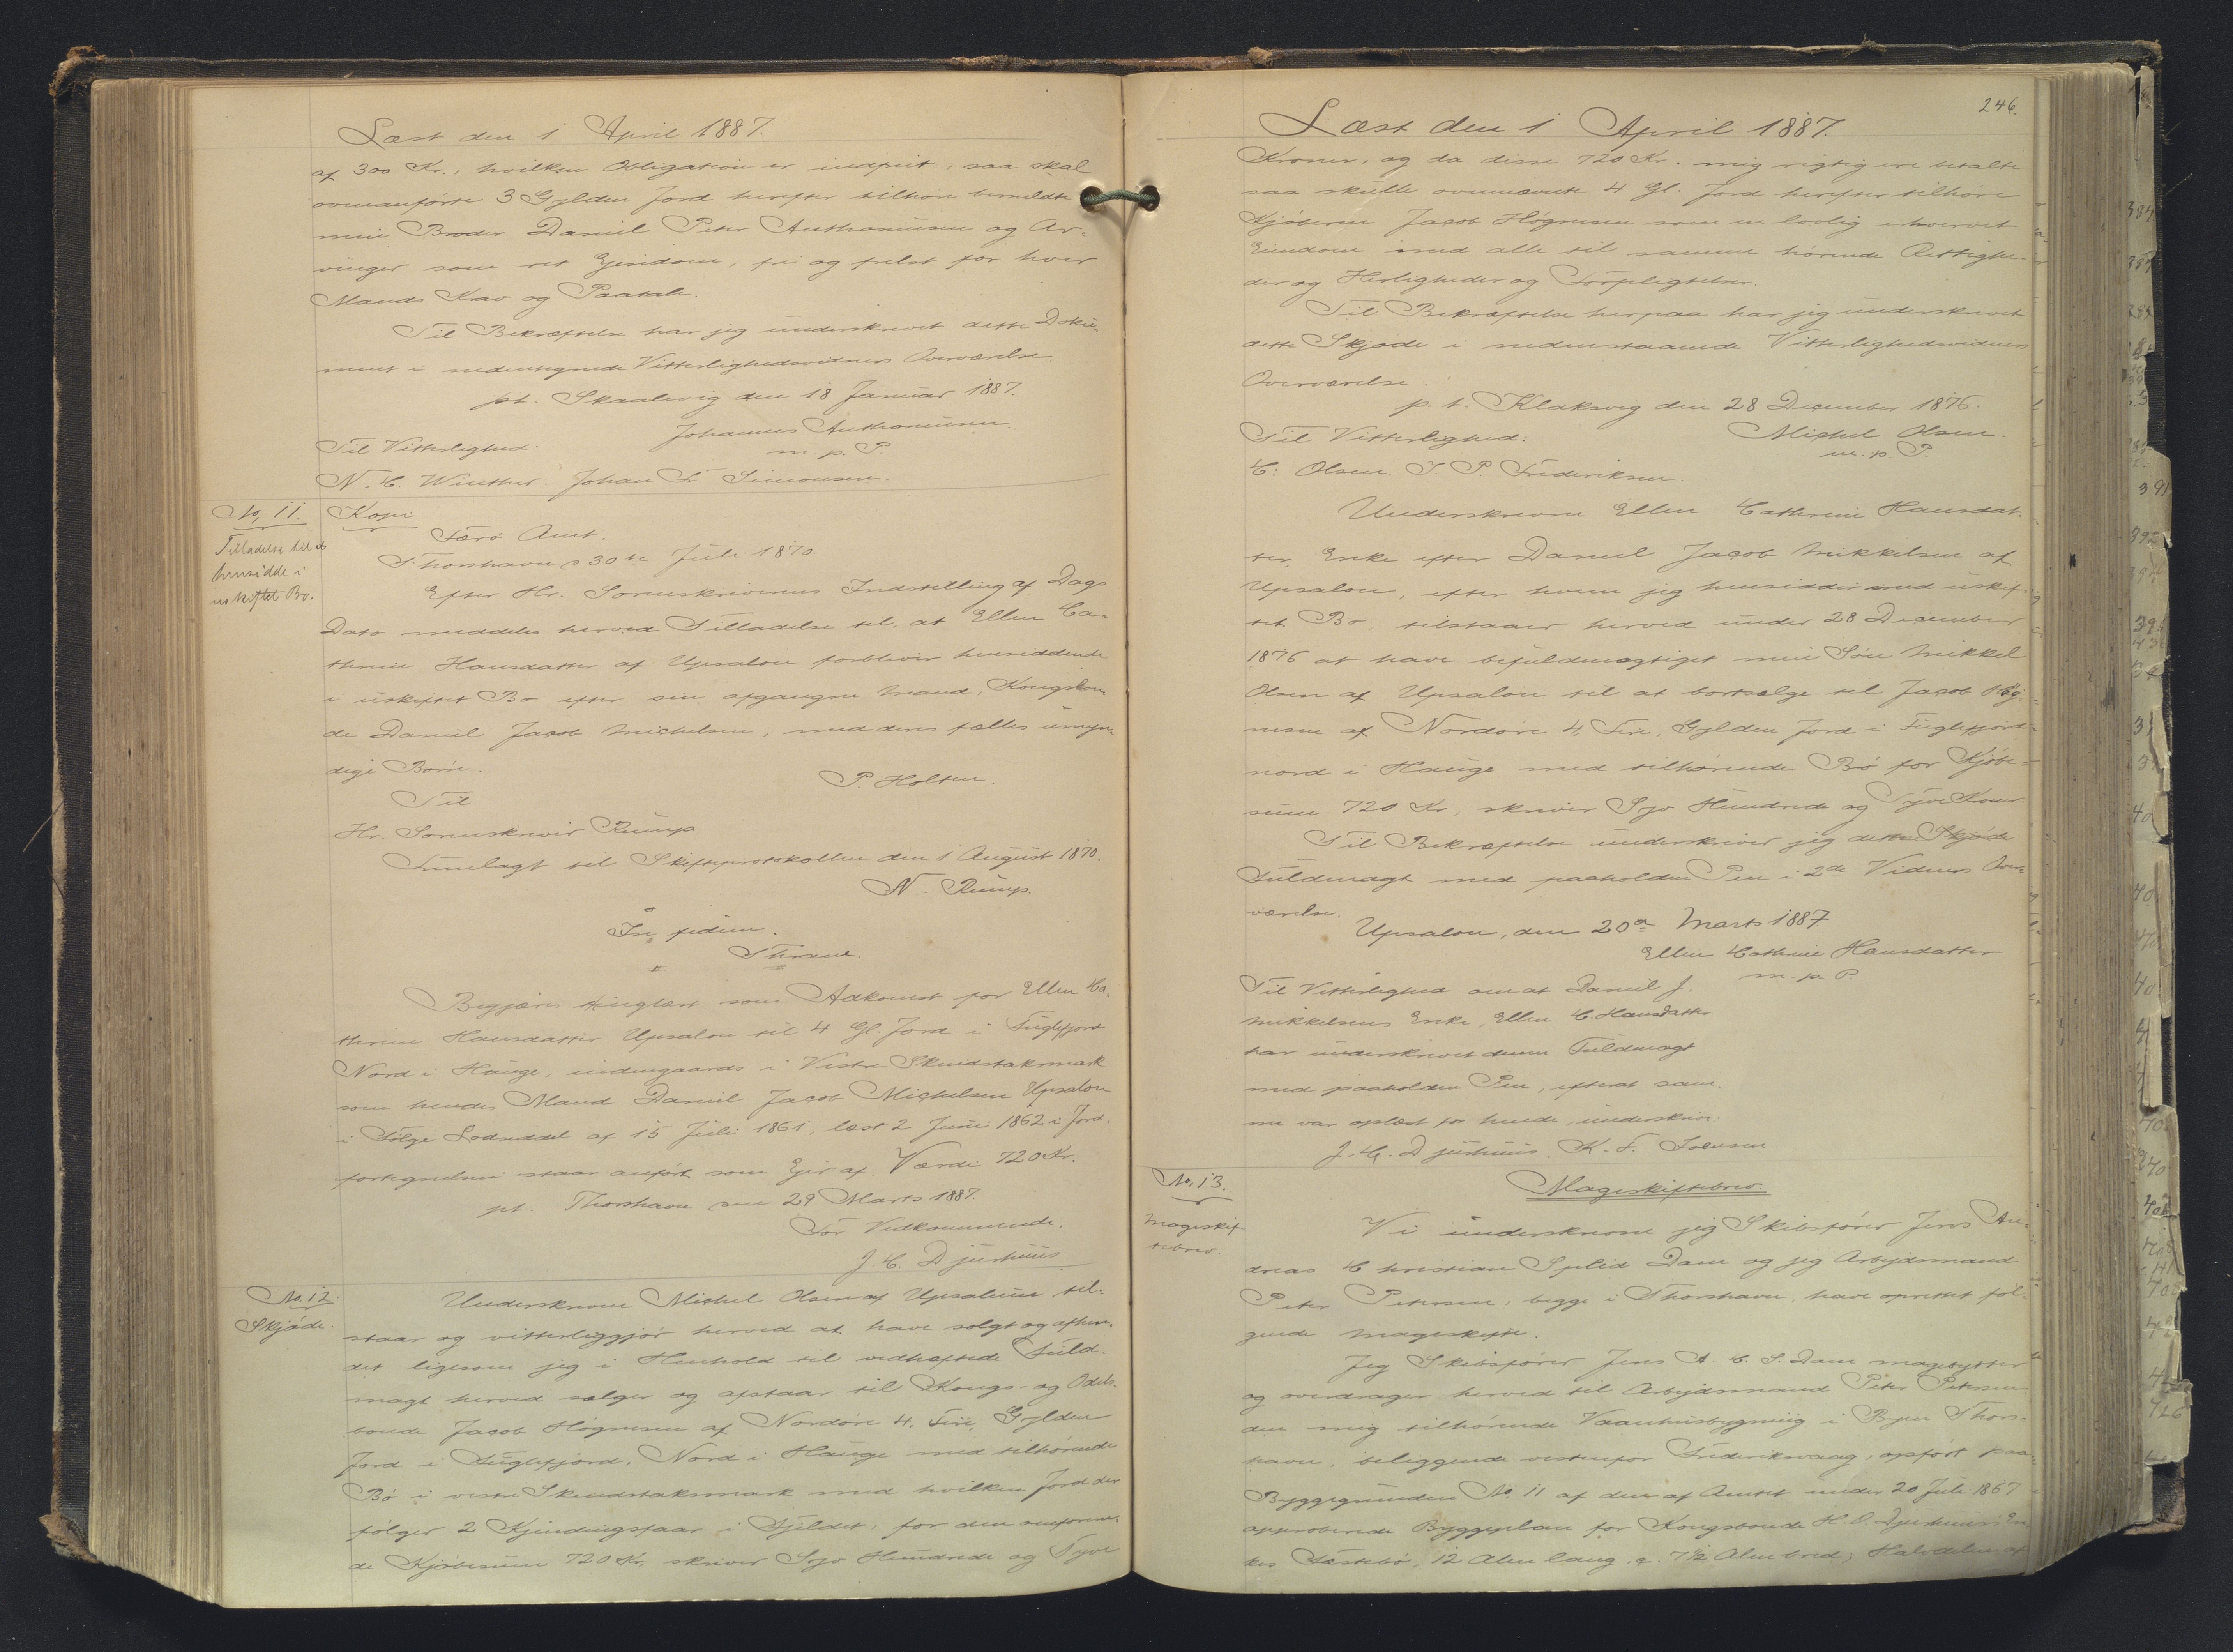 Læst den 1 April 1887.
af 300 Kr., hvilken Obligation er indfriet, saa skal
ovenanførte 3 Gylden Jord herefter tilhøre bemeldte
min Broder Daniel Peter Anthoniusen og Ar-
vinger som ret Ejendom, fri og frelst for hver
Mands Krav og Paatale.
Til Bekræftelse har jeg underskrevet dette Doku-
ment i nedentegnede Vitterlighedsvidners Overværelse
pt. Skaalevig den 18 Januar 1887.
Johannes Anthoniusen
Til Vitterlighed. m. p. P
N. C. Winther. Johan Fr. Simonsen.
No. 11.
Tilladelse til at
hensidde i
uskiftet Bo.
Kopi
Færø Amt.
Thorshavn d 30te Juli 1870.
Efter Hr. Sorenskriverens Indstilling af Dags
Dato meddeles herved Tilladelse til, at Ellen Ca-
thrine Hansdatter af Upsalen forbliver hensiddende
i uskiftet Bo efter sin afgangne Mand, Kongsbon-
de Daniel Jacob Michelsen, med deres fælles umyn-
dige Børn.
P. Holten.
Til
Hr. Sorenskriver Rump
Fremlagt til Skifteprotokollen den 1 August 1870.
N. Rump.
In fidem.
Thrane.
Begjæres tinglæst som Adkomst for Ellen Ca-
thrine Hansdatter Upsalen til 4 Gl. Jord i Fuglefjord
Nord i Hauge, indengaards i Vestre Skeidstaksmark
som hendes Mand Daniel Jacob Michelsen Upsalen
i Følge Lodseddel af 15 Juli 1861, læst 2 Juni 1862 i Jord-
fortegnelsen staar anført som Ejer af. Værdi 720 Kr.
pt. Thorshavn den 29 Marts 1887.
For Vedkommende.
J. C. Djurhuus
No. 12.
Skjøde.
Underskrevne Michel Olsen af Upsalen til-
staar og vitterliggjør herved at have solgt og afhæn-
det ligesom jeg i Henhold til vedhæftede Fuld-
magt herved sælger og afstaar til Kongs- og Odels-
bonde Jacob Høgnesen af Nordøre 4, Fire, Gylden
Jord i Fuglefjord, Nord i Hauge med tilhørende
Bø i vestre Skeidstaksmark med hvilken Jord der
følger 2 Kjendingsfaar i Fjeldet, for den omforene-
de Kjøbesum 720 Kr, skriver Syv Hundrede og Tyve
246.
Læst den 1 April 1887.
Kroner, og da disse 720 Kr. mig rigtig ere betalte
saa skulle ovennævnte 4 Gl. Jord herefter tilhøre
Kjøberen Jacob Høgnesen som en lovlig erhvervet
Eiendom med alle til samme hørende Rettighe-
der og Herligheder og Forpligtelser.
Til Bekræftelse herpaa har jeg underskrevet
dette Skjøde i nedenstaaende Vitterlighedsvidners
Overværelse.
p. t. Klaksvig den 28 December 1876.
Til Vitterlighed: Michel Olsen.
m. p. P.
C. Olsen. J. P. Frederiksen.
Underskrevne Ellen Cathrine Hansdat-
ter, Enke efter Daniel Jacob Mikkelsen af
Upsalen, efter hvem jeg hensidder med uskif-
tet Bo, tilstaaer herved under 28 December
1876 at have befuldmægtiget min Søn Mikkel
Olsen af Upsalen til at bortsælge til Jacob Høg-
nesen af Nordøre 4, Fire, Gylden Jord i Fuglefjord
nord i Hauge med tilhørende Bø for Kjøbe-
sum 720 Kr, skriver Syv Hundrede og Tyve Kroner.
Til Bekræftelse underskriver jeg dette Skjøde
Fuldmagt med paaholden Pen i 2de Vidners Over-
værelse.
Upsalen, den 20de Marts 1887
Ellen Cathrine Hansdatter
m. p. P.
Til Vitterlighed om at Daniel J.
Mikkelsens Enke, Ellen C. Hansdatter
har underskrevet denne Fuldmagt
med paaholden Pen, efterat sam-
me var oplæst for hende, underskrive.
J. C. Djurhuus. K. F. Joensen
No. 13.
Mageskif-
tebrev.
Mageskiftebrev.
Vi underskrevne jeg Skibsfører Jens An-
dreas Christian Splid Dam og jeg Arbejdsmand
Peter Petersen, begge i Thorshavn, have oprettet føl-
gende Mageskifte.
Jeg Skibsfører Jens A. C. S. Dam magebytter
og overdrager herved til Arbejdsmand Peter Petersen
den mig tilhørende Vaanhusbygning i Byen Thors-
havn, beliggende vestenfor Frederiksvaag, opført paa
Byggegrunden No. 11 af den af Amtet under 20 Juli 1867
approberede Byggeplan for Kongsbonde H. O. Djurhuus's En-
kes Fæstebø, 12 Alen lang, c. 7 1/2 Alen bred; Halvdelen af